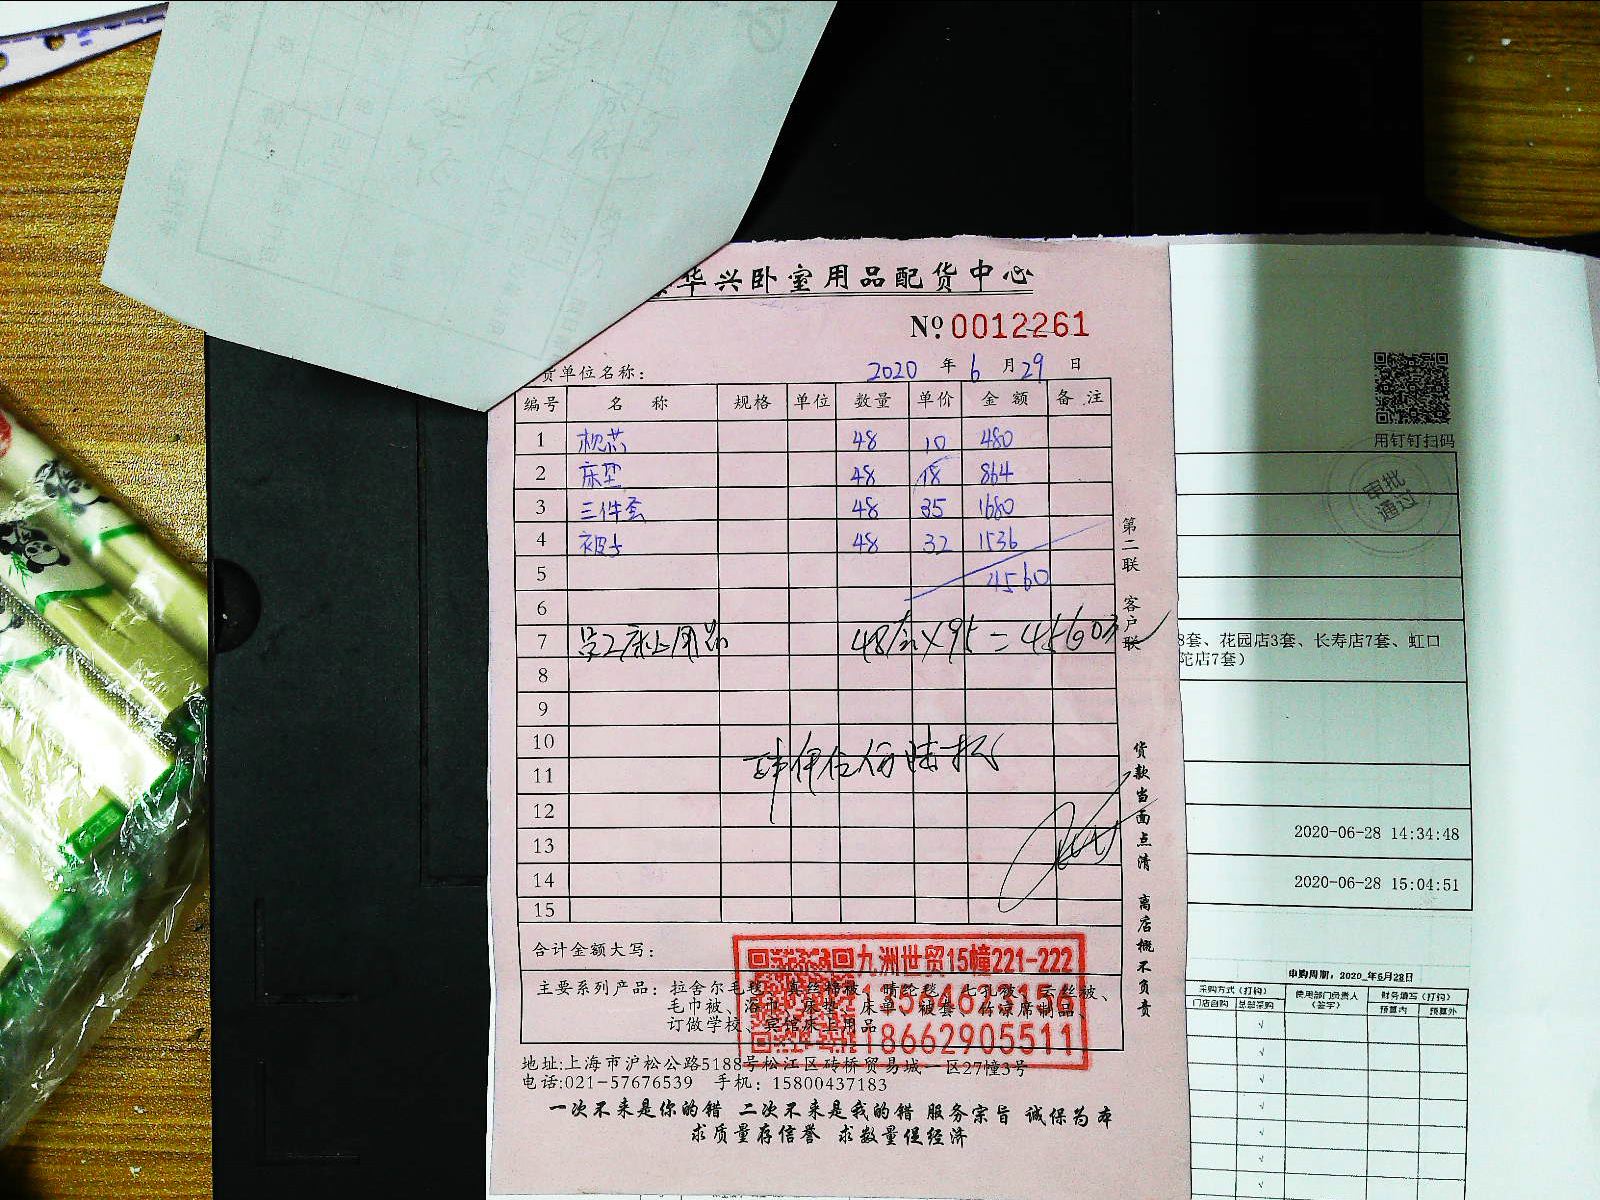 华兴卧室用品配货中心
No. 0012261
货单位名称：
2020 年 6 月 29 日
编号 名 称 规格 单位 数量 单价 金 额 备 注
1 枕芯 48 10 480
2 床垫 48 18 864
3 三件套 48 35 1680
4 被子 48 32 1536
5 4560
6
7 员工床上用品 48套×95=4560元
8
9
10
11 肆仟伍佰陆拾元
12
13
14
15
合计金额大写：
主要系列产品：拉舍尔毛毯、真丝棉被、腈纶毯、七孔被、云丝被、
毛巾被、浴巾、床垫、床单、被套、竹凉席制品、
订做学校、宾馆床上用品
九洲世贸15幢221-222
13564623156
18662905511
地址:上海市沪松公路5188号松江区砖桥贸易城一区27幢3号
电话:021-57676539 手机：15800437183
一次不来是你的错 二次不来是我的错 服务宗旨 诚保为本
求质量存信誉 求数量促经济
第二联 客户联
货款当面点清 离店概不负责
用钉钉扫码
审批
通过
8套、花园店3套、长寿店7套、虹口
陀店7套）
2020-06-28 14:34:48
2020-06-28 15:04:51
申购周期：2020_年6月28日
采购方式（打钩） 使用部门负责人（签字） 财务填写（打钩）
门店自购 总部采购 预算内 预算外